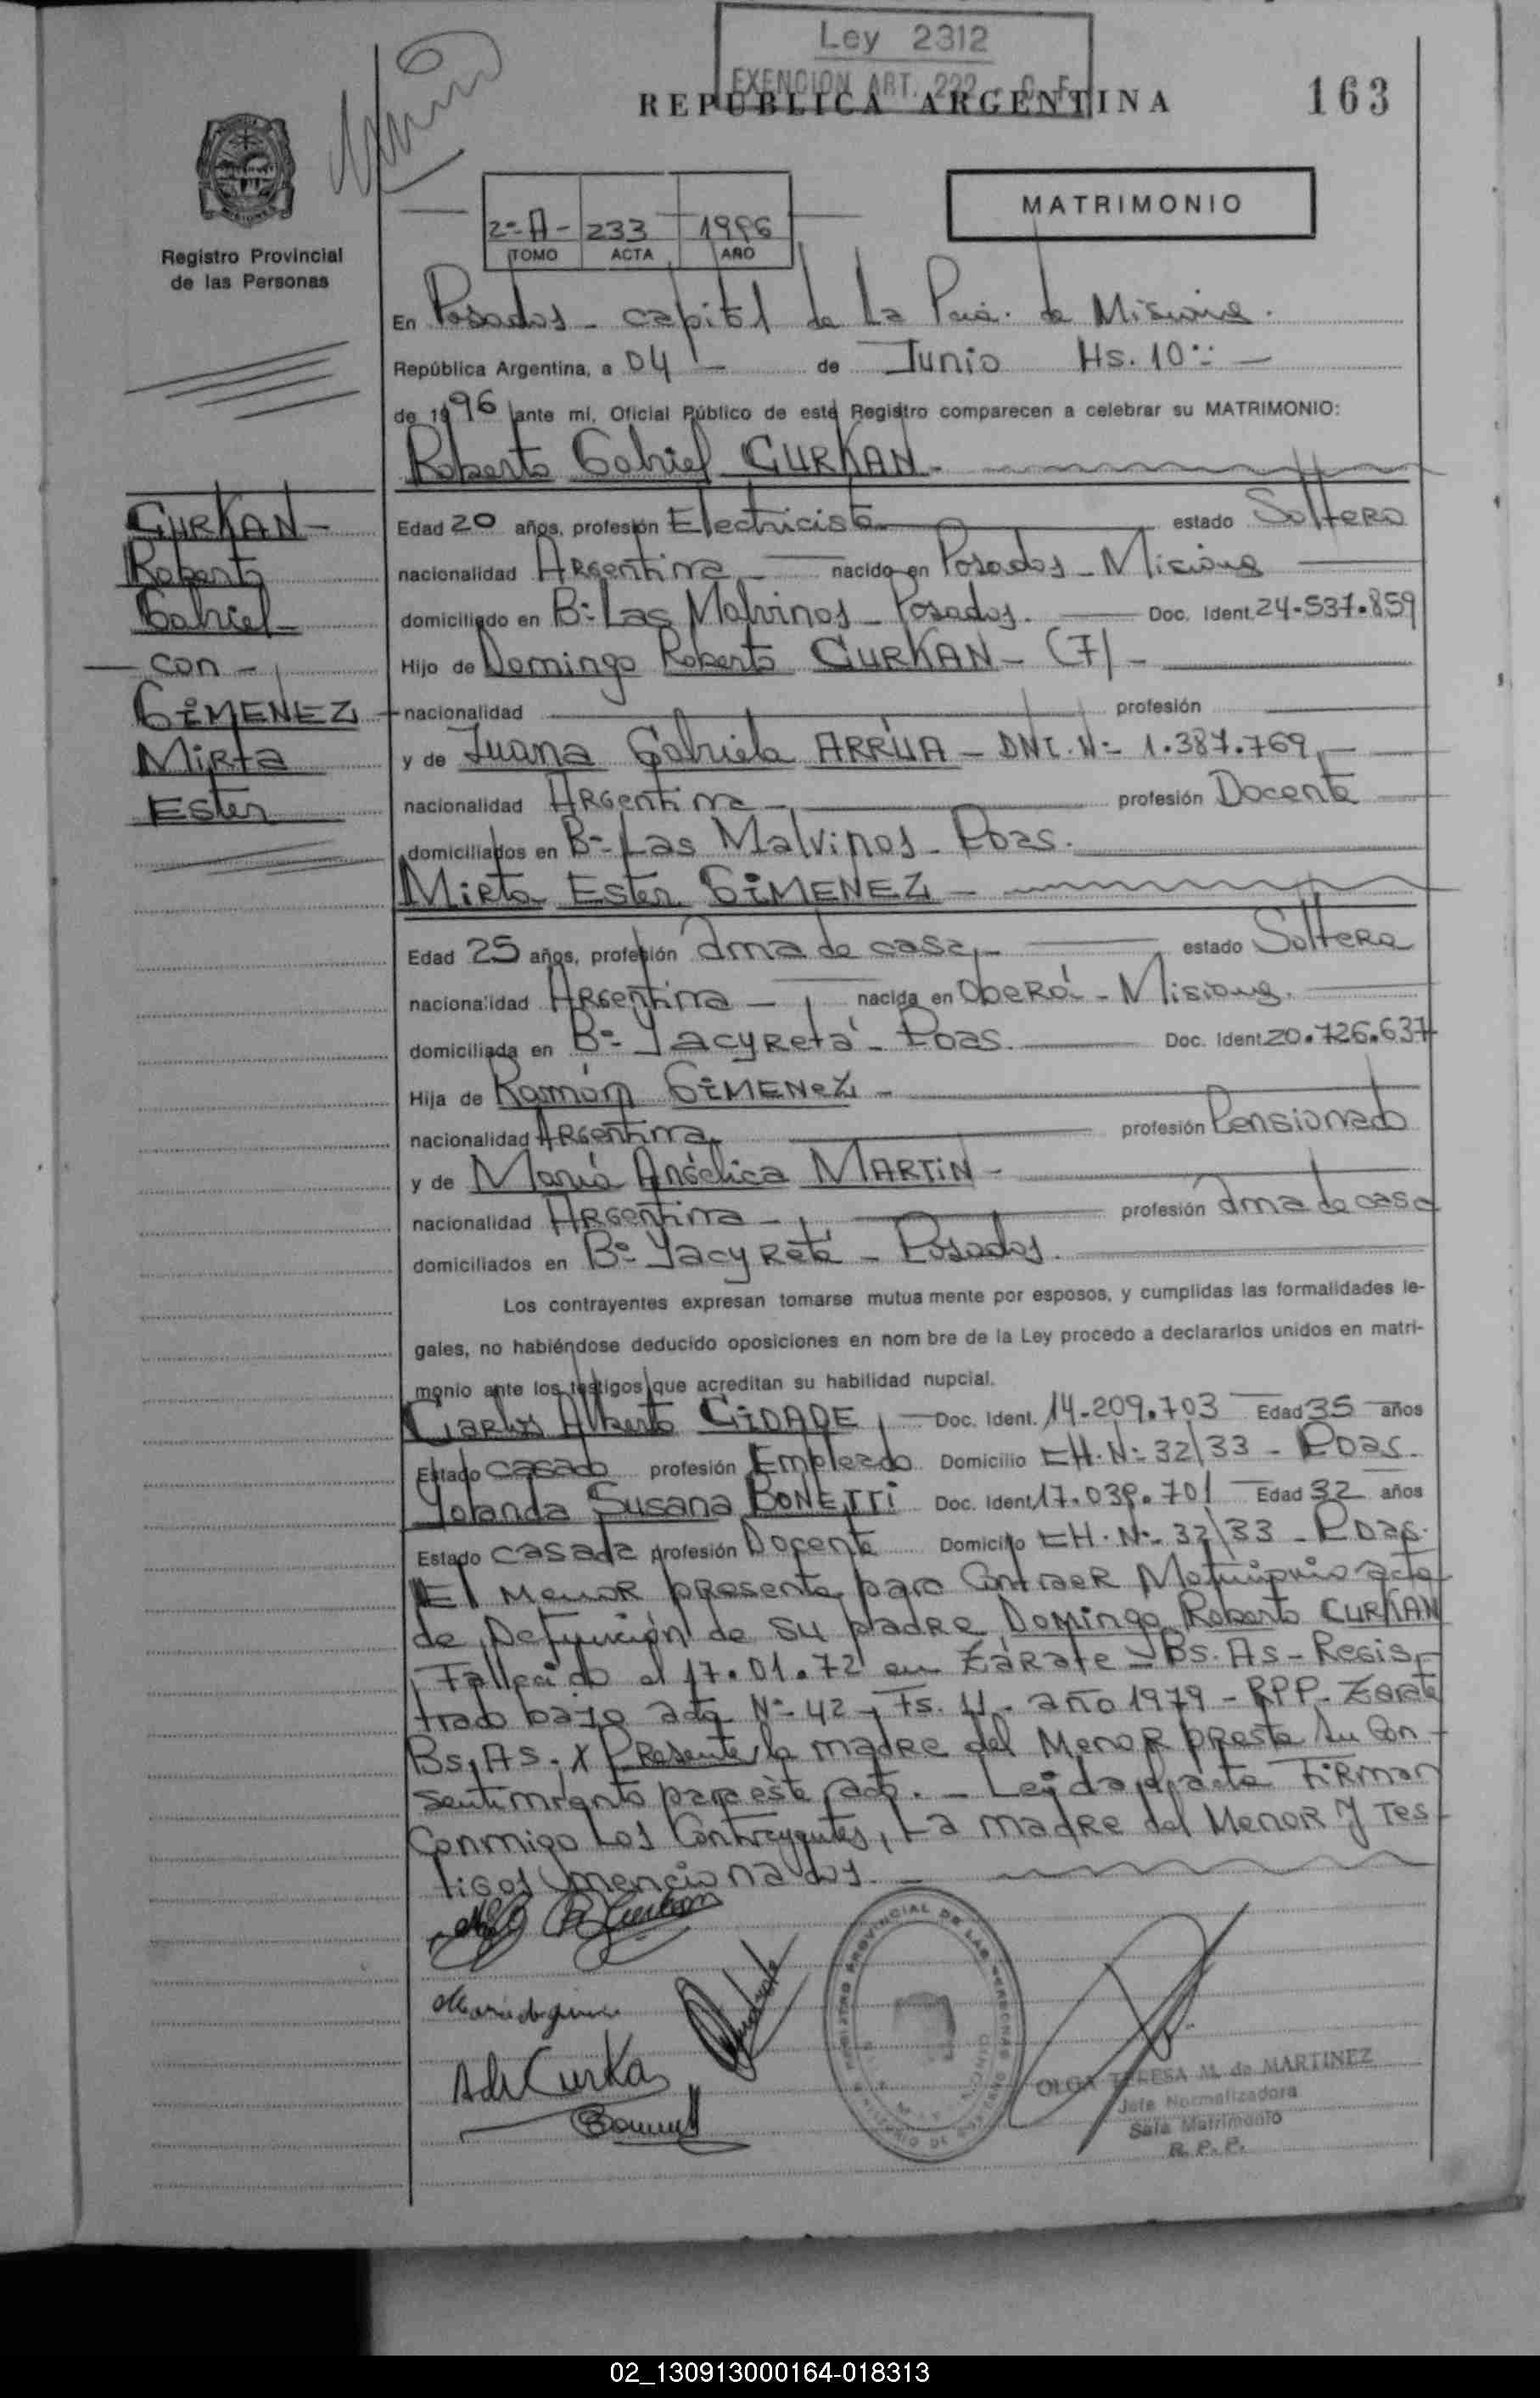 Ley 2312
EXENCION ART. 222 C. F.
REPUBLICA ARGENTINA
163
MATRIMONIO
2º-A- 233 1996
TOMO ACTA AÑO
Registro Provincial
de las Personas
En Posadas - capital de La Pcia. de Misiones.
República Argentina, a 04 - de Junio Hs. 10:-
de 1996 ante mí, Oficial Público de este Registro comparecen a celebrar su MATRIMONIO:
Roberto Gabriel CURKAN-
CURKAN-
Roberto
Gabriel-
- con -
GiMENEZ
Mirta
Ester
Edad 20 años, profesión Electricista estado Soltero
nacionalidad Argentina - nacido en Posadas - Misiones
domiciliado en Bº Las Malvinas - Posadas. Doc. Ident. 24-537.859
Hijo de Domingo Roberto CURKAN - (F) -
nacionalidad profesión
y de Juana Gabriela ARRUA - DNI. Nº 1.387.769,-
nacionalidad Argentina - profesión Docente
domiciliados en Bº Las Malvinas - Pdas.
Mirta Ester GiMENEZ -
Edad 25 años, profesión ama de casa,- estado Soltera
nacionalidad Argentina - nacida en Oberá - Misiones.
domiciliada en Bº Yacyretá - Pdas. Doc. Ident. 20.726.637
Hija de Ramón GiMENEZ -
nacionalidad Argentina, profesión Pensionado
y de María Angélica MARTiN -
nacionalidad Argentina - profesión ama de casa
domiciliados en Bº Yacyretá - Posadas.
Los contrayentes expresan tomarse mutua mente por esposos, y cumplidas las formalidades le-
gales, no habiéndose deducido oposiciones en nom bre de la Ley procedo a declararlos unidos en matri-
monio ante los testigos que acreditan su habilidad nupcial.
Carlos Alberto CiDADE, - Doc. Ident. 14-209.703 Edad 35 años
Estado casado profesión Empleado Domicilio CH. Nº 32/33 - Pdas.
Yolanda Susana BONETTi Doc. Ident. 17.039.701 Edad 32 años
Estado casada profesión Docente Domicilio CH. Nº 32/33 - Pdas.
El Menor presenta para Contraer Matrimonio acta
de Defunción de su padre Domingo Roberto CURKAN
Fallecido el 17.01.72 en Zárate - Bs. As - Regis-
trado bajo acta Nº 42 - Fs. 11 - año 1979 - RPP - Zárate
Bs. As. x Presente la madre del Menor presta su Con-
sentimiento para éste acto. - Leida el acta Firman
Conmigo Los Contrayentes, La madre del Menor y Tes-
tigos mencionados. -
OLGA TERESA M. de MARTINEZ
Jefe Normalizadora
Sala Matrimonio
R. P. P.
02_130913000164-018313